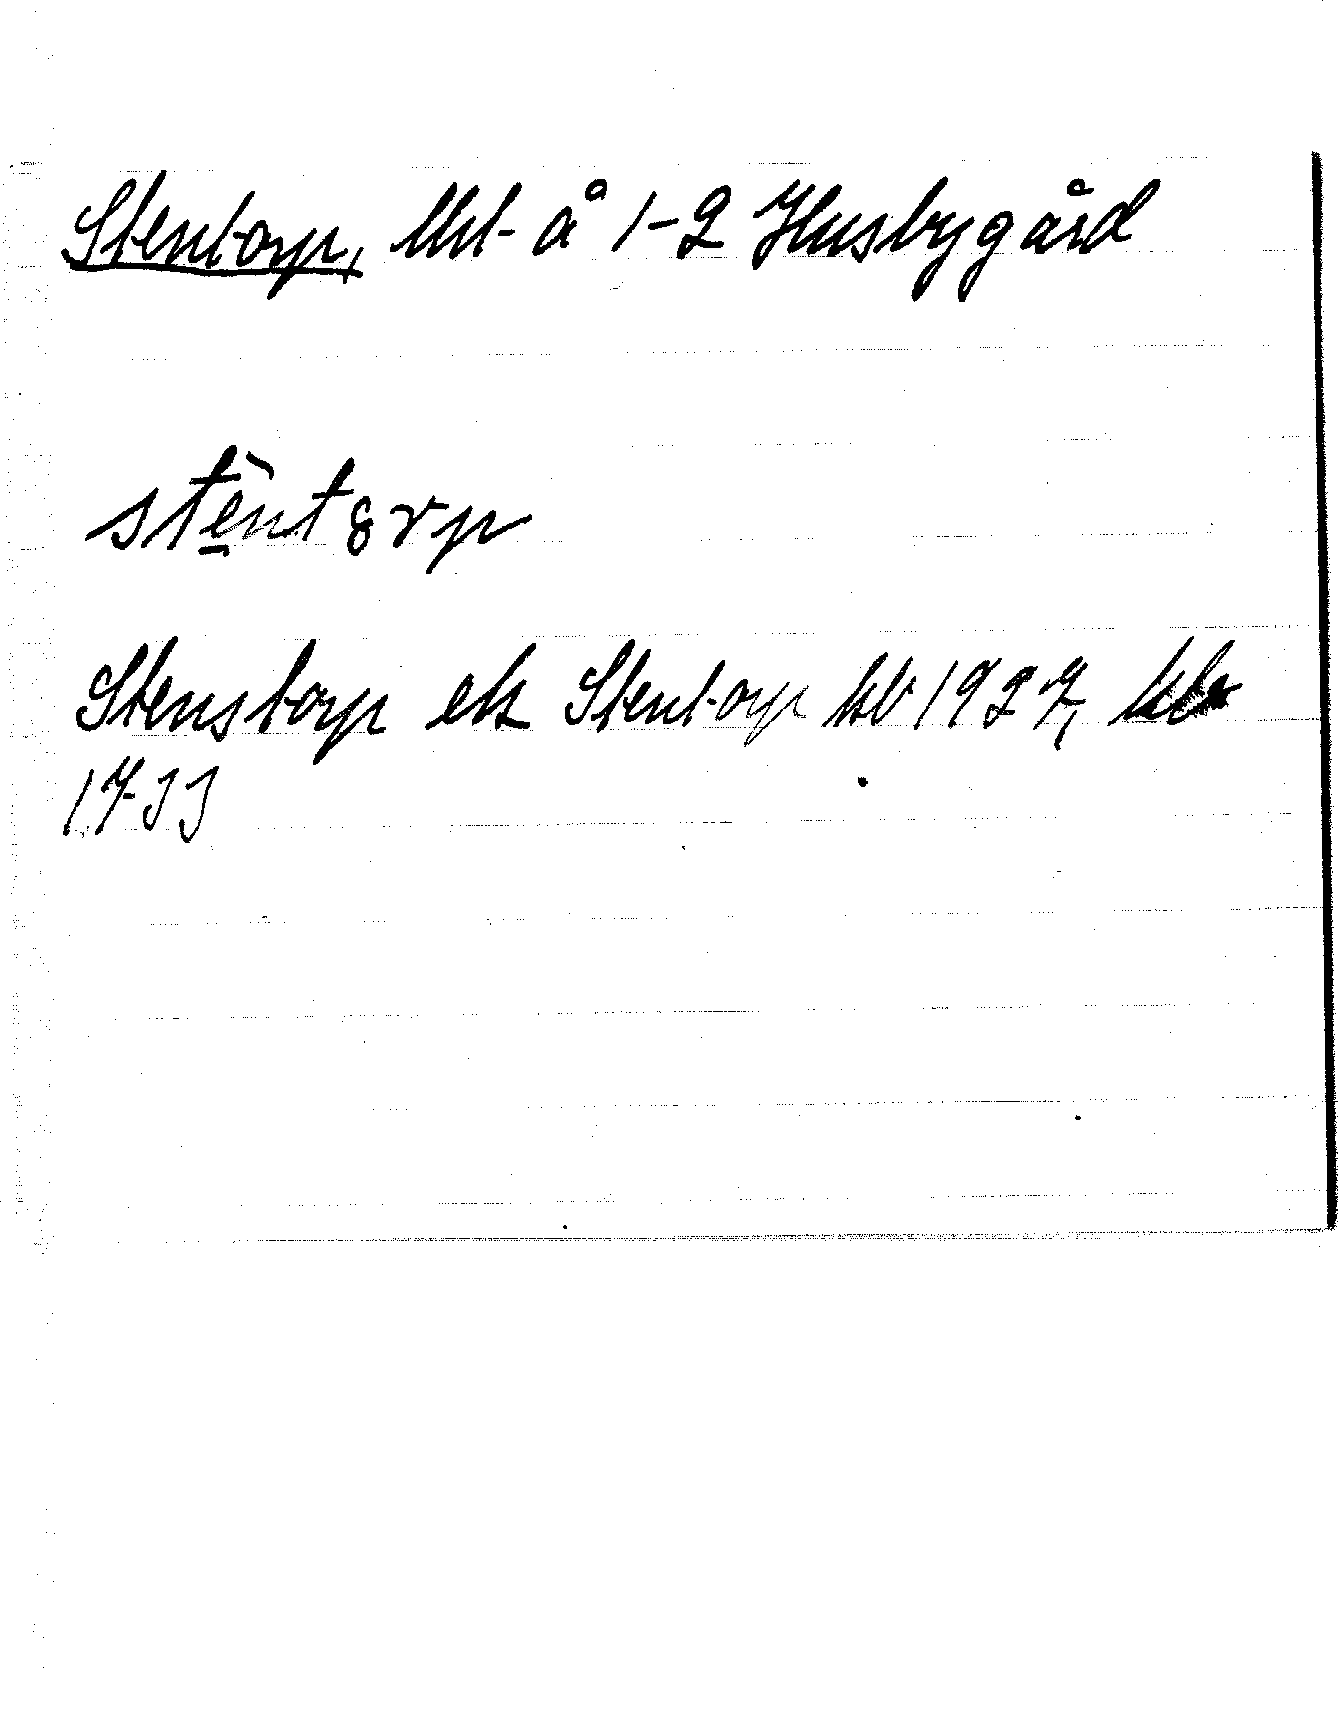 Stentorp, lht å 1-2 Husbygård
stèntȣrp
Stenstorp ek Stentorp kb 1927,
1733